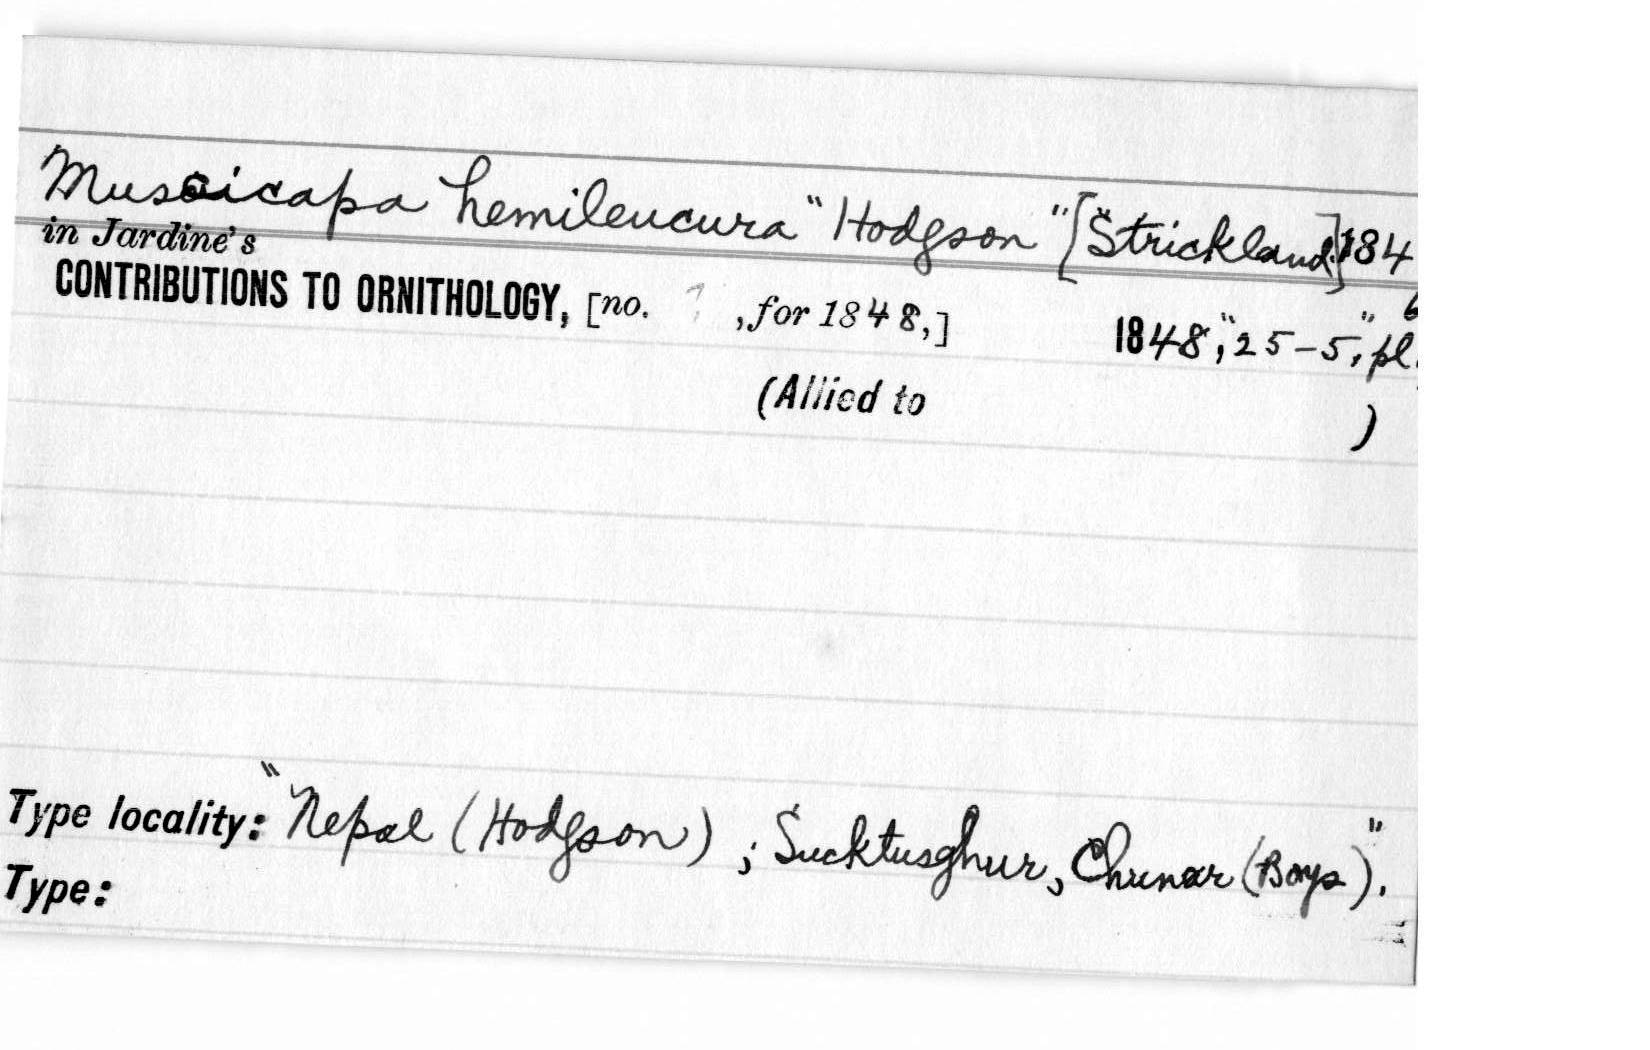 Muscicapa hemileucura "Hodgson" [Strickland] 184
in Jardine's
CONTRIBUTIONS TO ORNITHOLOGY, [no. ? , for 1848,] 1848, "25-5," pl.
(Allied to )
Type locality: "Nepal (Hodgson) ; Sucktusghur, Chunar (Boys)."
Type: